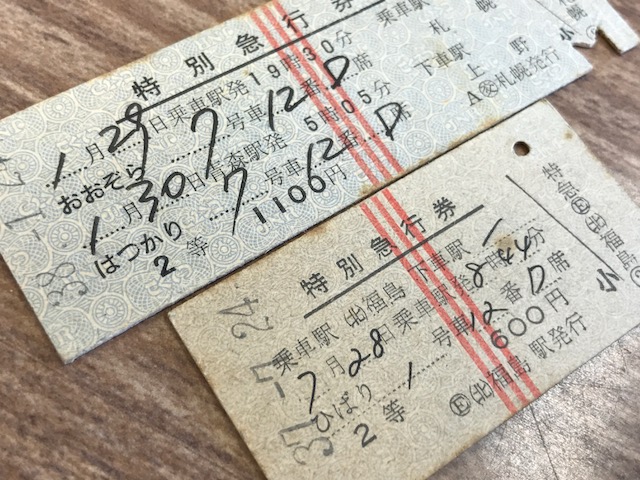 特別急行券
乗車駅 札幌
下車駅 上野
1月29日乗車駅発19時30分
おおぞら 7号車12番D席
1月30日青森駅発5時05分
はつかり 7号車12番D席
2等 1100円
A 札幌発行
小
特別急行券
乗車駅 福島 下車駅
7月28日乗車駅発8時44分
ひばり 1号車12番D席
2等 600円
福島駅発行
特急
福島
小